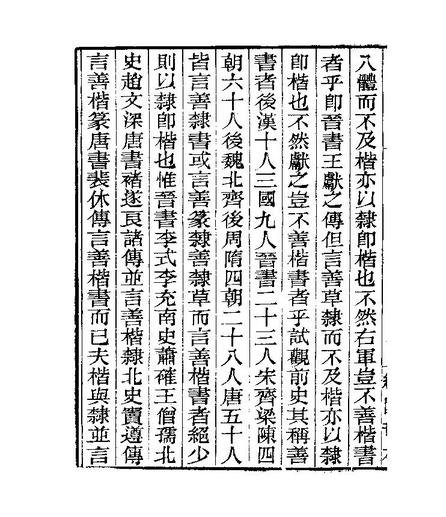 八體而不及楷亦以隸卽楷也不然右軍豈不善楷書
者乎卽晉書王獻之傳但言善草隸而不及楷亦以隸
卽楷也不然獻之豈不善楷書者乎試觀前史其稱善
書者後漢十人三國九人晉書二十三人宋齊梁陳四
朝六十人後魏北齊後周隋四朝二十八人唐五十人
皆言善隸書或言善篆隸善隸草而言善楷書者絕少
則以隸卽楷也惟晉書李式李充南史蕭確王僧孺北
史趙文深唐書褚遂良諸傳並言善楷隸北史竇遵傳
言善楷篆唐書裴休傳言善楷書而已夫楷與隸並言